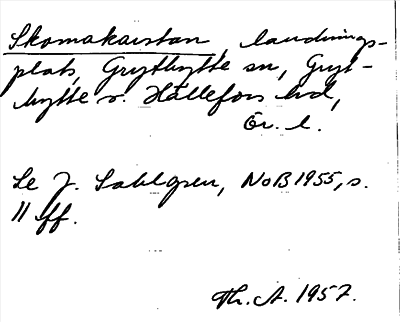 Skomakarstan, landnings-
plats, Grythytte sn, Gryt-
hytte o. Hällefors hd,
Ör. l.
Se J. Sahlgren, NoB 1955, s.
11 ff.
Th. A. 1957.